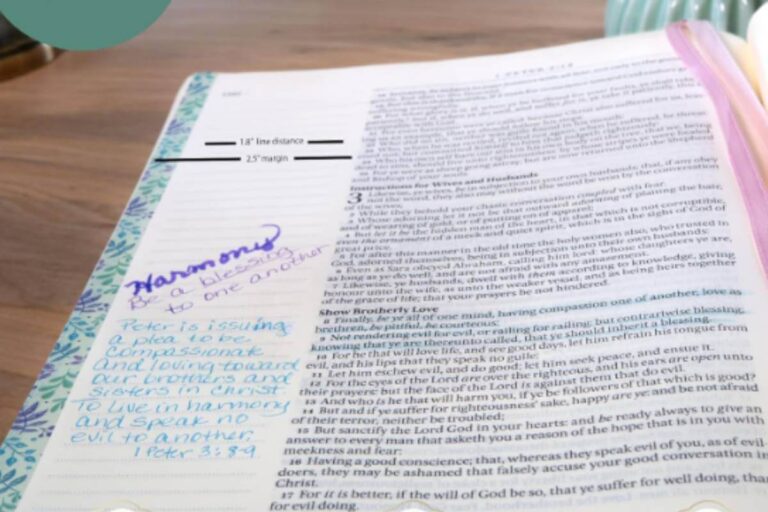 1.8" line distance
2.5" margin
Harmony
Be a blessing
to one another
Peter is issuing
a plea to be
compassionate
and loving toward
our brothers and
sisters in Christ
To live in harmony
and speak no
evil to another.
1 Peter 3:8-9
Instructions for Wives and Husbands
3 Likewise, ye wives, be in subjection to your own husbands; that, if any obey
not the word, they also may without the word be won by the conversation
of the wives;
2 While they behold your chaste conversation coupled with fear.
3 Whose adorning let it not be that outward adorning of plaiting the hair,
and of wearing of gold, or of putting on of apparel;
4 But let it be the hidden man of the heart, in that which is not corruptible,
even the ornament of a meek and quiet spirit, which is in the sight of God of
great price.
5 For after this manner in the old time the holy women also, who trusted in
God, adorned themselves, being in subjection unto their own husbands:
6 Even as Sara obeyed Abraham, calling him lord: whose daughters ye are,
as long as ye do well, and are not afraid with any amazement.
7 Likewise, ye husbands, dwell with them according to knowledge, giving
honour unto the wife, as unto the weaker vessel, and as being heirs together
of the grace of life; that your prayers be not hindered.
Show Brotherly Love
8 Finally, be ye all of one mind, having compassion one of another, love as
brethren, be pitiful, be courteous:
9 Not rendering evil for evil, or railing for railing: but contrariwise blessing;
knowing that ye are thereunto called, that ye should inherit a blessing.
10 For he that will love life, and see good days, let him refrain his tongue from
evil, and his lips that they speak no guile:
11 Let him eschew evil, and do good; let him seek peace, and ensue it.
12 For the eyes of the Lord are over the righteous, and his ears are open unto
their prayers: but the face of the Lord is against them that do evil.
13 And who is he that will harm you, if ye be followers of that which is good?
14 But and if ye suffer for righteousness' sake, happy are ye: and be not afraid
of their terror, neither be troubled;
15 But sanctify the Lord God in your hearts: and be ready always to give an
answer to every man that asketh you a reason of the hope that is in you with
meekness and fear:
16 Having a good conscience; that, whereas they speak evil of you, as of evil-
doers, they may be ashamed that falsely accuse your good conversation in
Christ.
17 For it is better, if the will of God be so, that ye suffer for well doing, than
for evil doing.